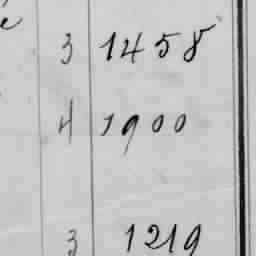 3 1458
4 1900
3 1219